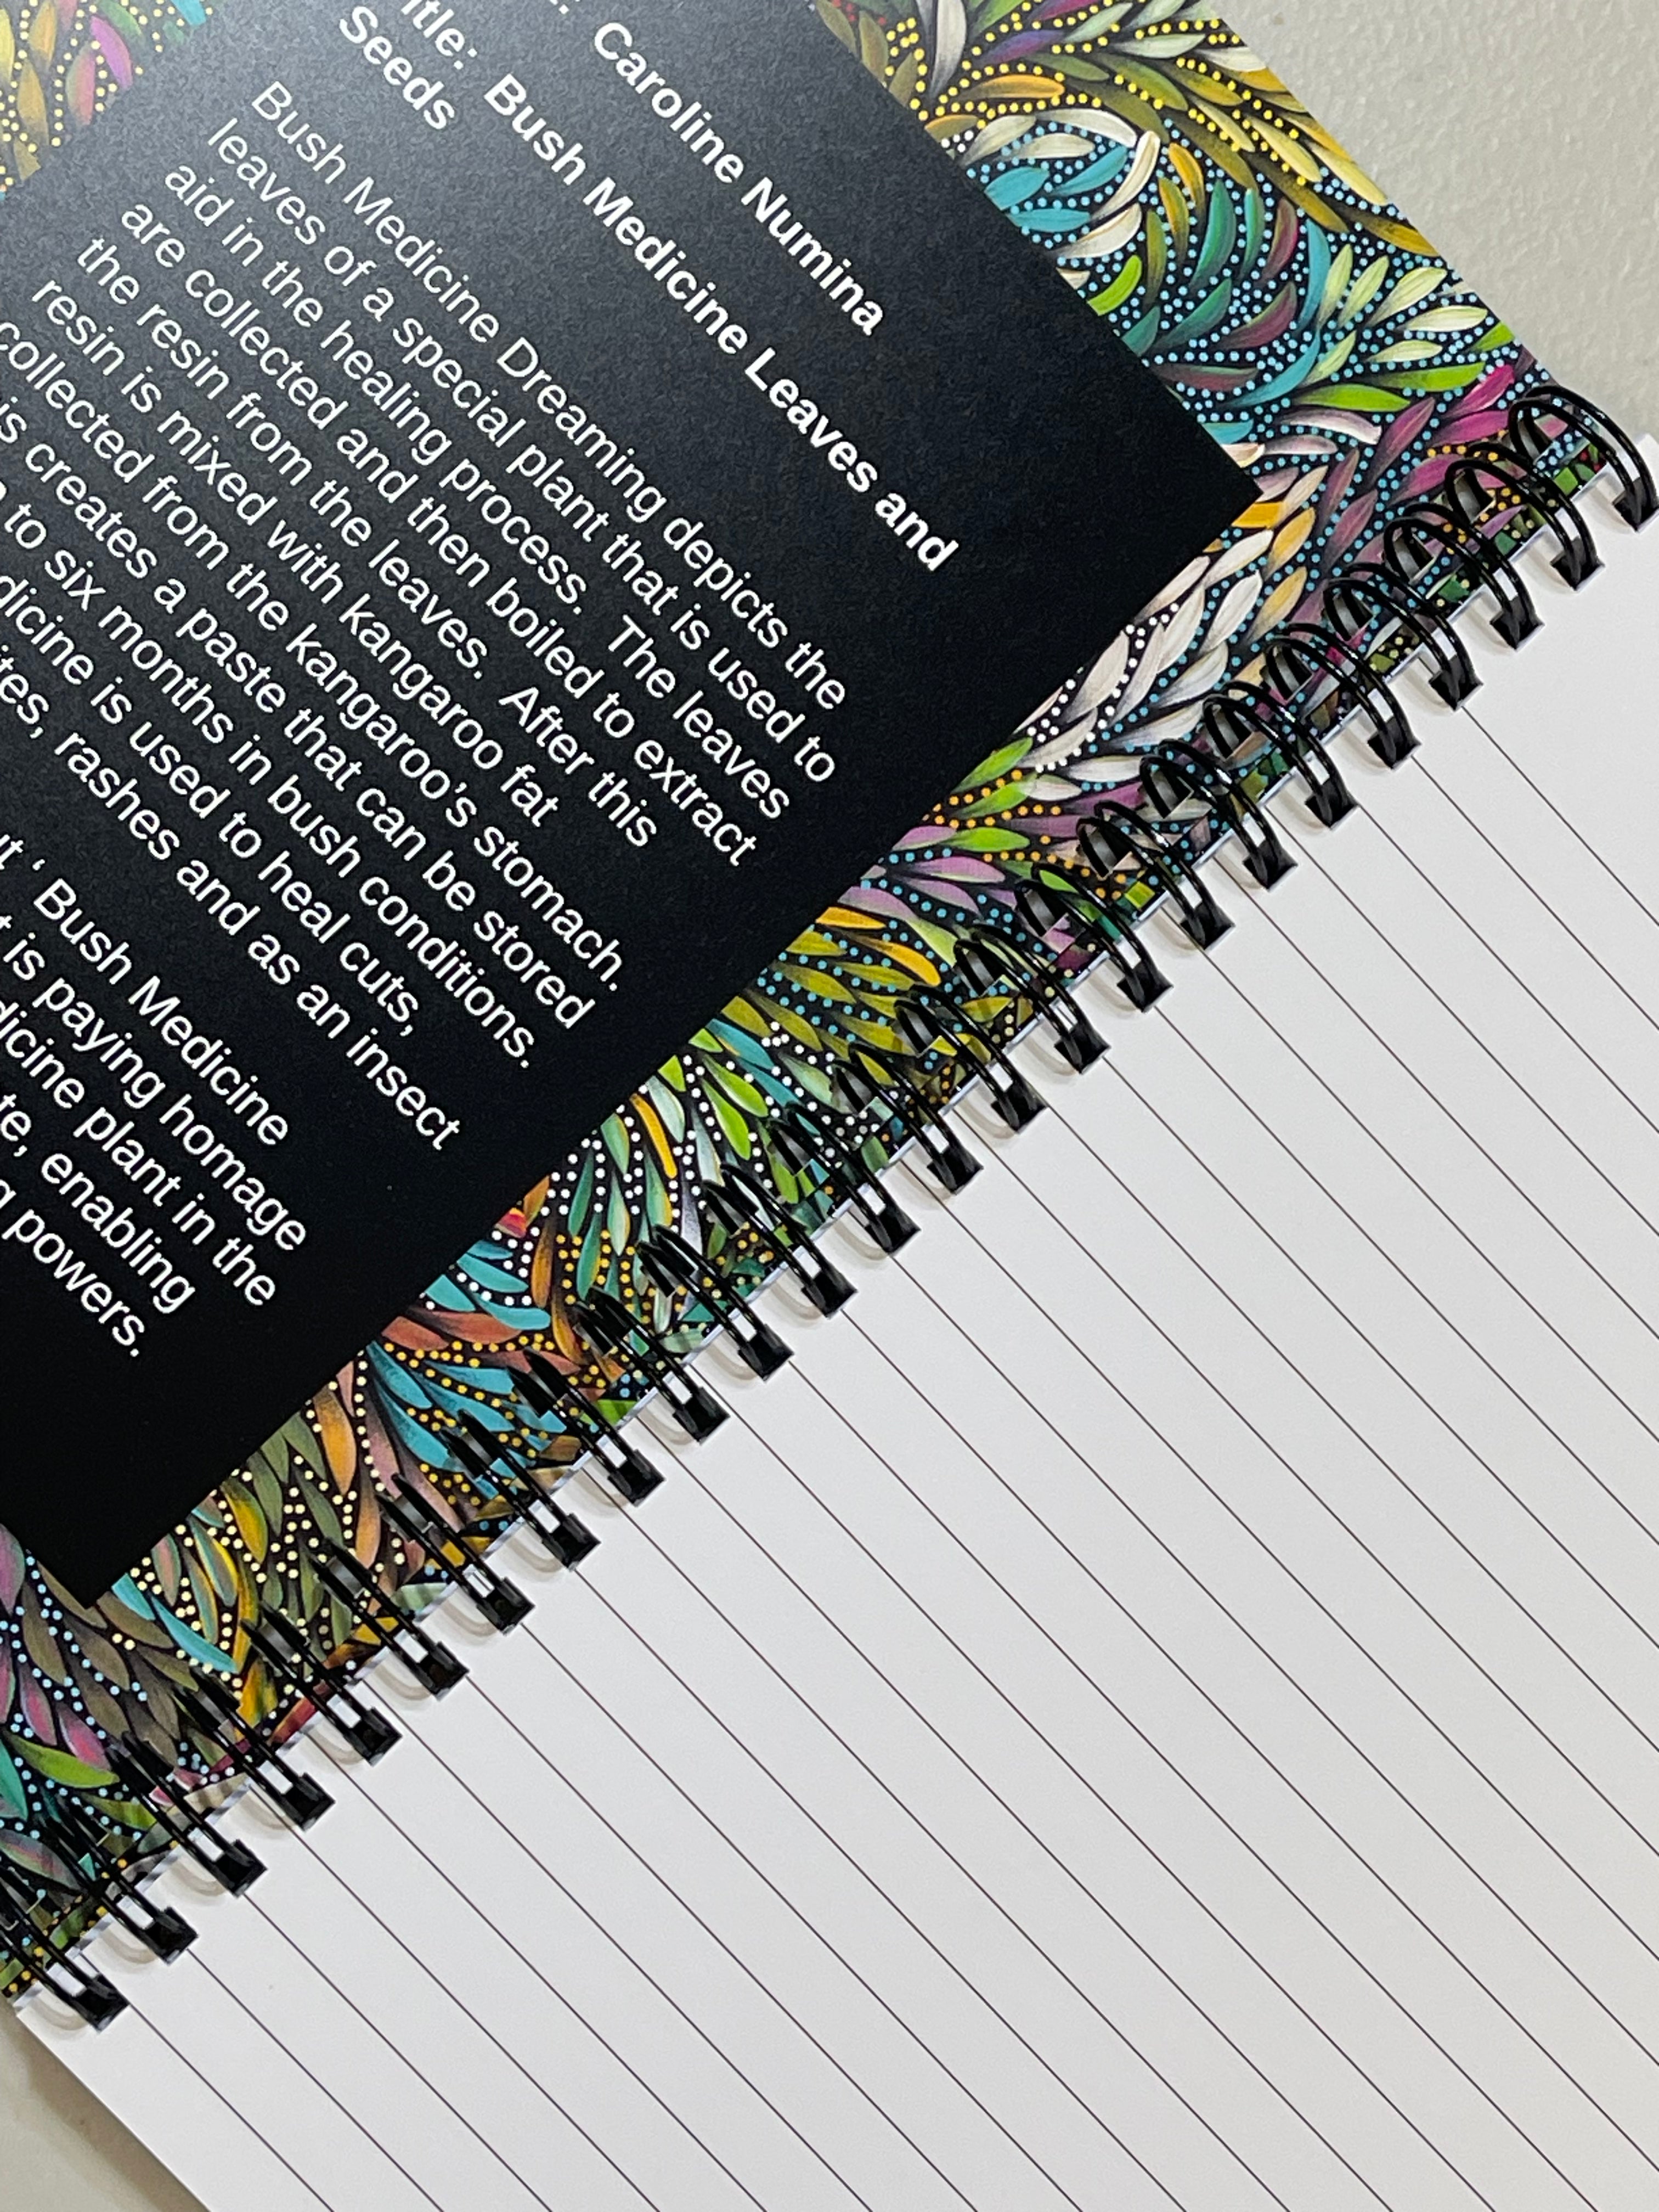 Caroline Numina
Bush Medicine Leaves and
Seeds
Bush Medicine Dreaming depicts the
leaves of a special plant that is used to
aid in the healing process. The leaves
are collected and then boiled to extract
the resin from the leaves. After this
resin is mixed with kangaroo fat
collected from the kangaroo's stomach.
creates a paste that can be stored
to six months in bush conditions.
is used to heal cuts,
rashes and as an insect
‘ Bush Medicine
is paying homage
plant in the
enabling
powers.